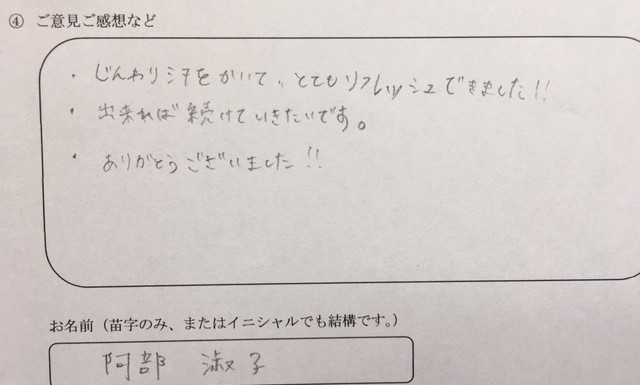 ④ ご意見ご感想など
・じんわり汗をかいて、とてもリフレッシュできました!!
・出来れば続けていきたいです。
・ありがとうございました!!
お名前（苗字のみ、またはイニシャルでも結構です。）
阿部 淑子